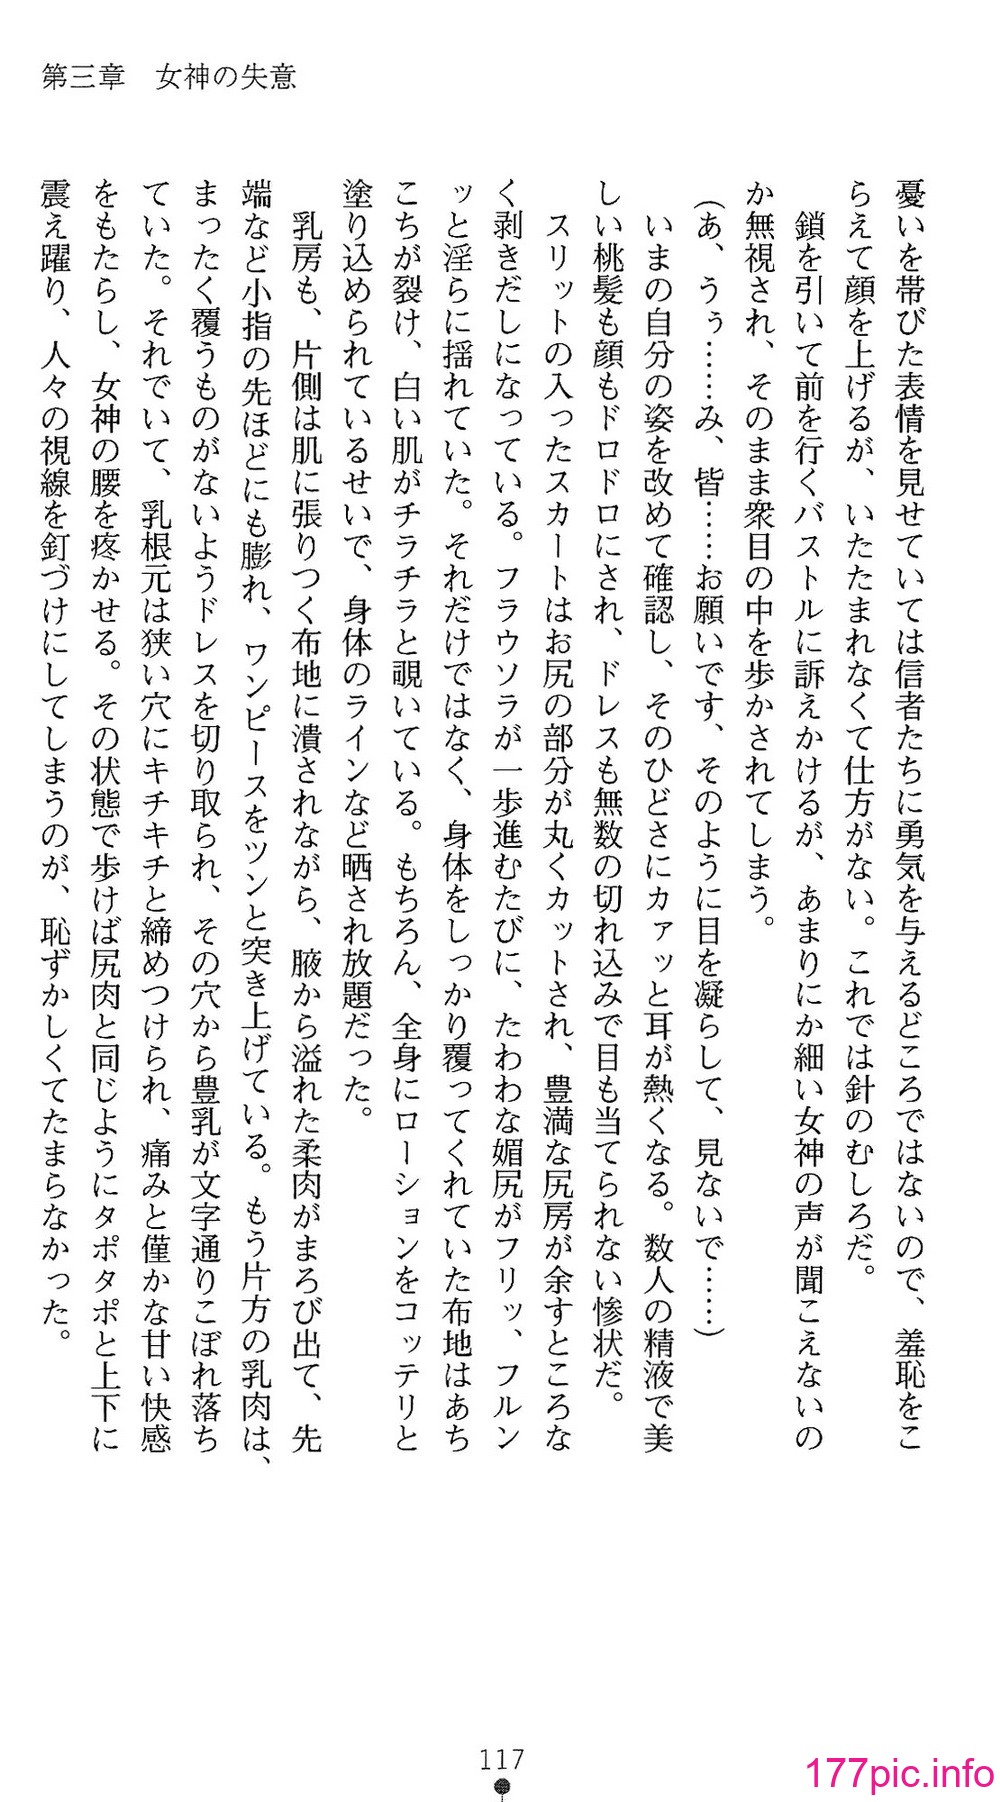 第三章　女神の失意
憂いを帯びた表情を見せていては信者たちに勇気を与えるどころではないので、羞恥をこ
らえて顔を上げるが、いたたまれなくて仕方がない。これでは針のむしろだ。
鎖を引いて前を行くバストルに訴えかけるが、あまりにか細い女神の声が聞こえないの
か無視され、そのまま衆目の中を歩かされてしまう。
（あ、うぅ……み、皆……お願いです、そのように目を凝らして、見ないで……）
いまの自分の姿を改めて確認し、そのひどさにカァッと耳が熱くなる。数人の精液で美
しい桃髪も顔もドロドロにされ、ドレスも無数の切れ込みで目も当てられない惨状だ。
スリットの入ったスカートはお尻の部分が丸くカットされ、豊満な尻房が余すところな
く剥きだしになっている。フラウソラが一歩進むたびに、たわわな媚尻がフリッ、フルン
ッと淫らに揺れていた。それだけではなく、身体をしっかり覆ってくれていた布地はあち
こちが裂け、白い肌がチラチラと覗いている。もちろん、全身にローションをコッテリと
塗り込められているせいで、身体のラインなど晒され放題だった。
乳房も、片側は肌に張りつく布地に潰されながら、腋から溢れた柔肉がまろび出て、先
端など小指の先ほどにも膨れ、ワンピースをツンと突き上げている。もう片方の乳肉は、
まったく覆うものがないようドレスを切り取られ、その穴から豊乳が文字通りこぼれ落ち
ていた。それでいて、乳根元は狭い穴にキチキチと締めつけられ、痛みと僅かな甘い快感
をもたらし、女神の腰を疼かせる。その状態で歩けば尻肉と同じようにタポタポと上下に
震え躍り、人々の視線を釘づけにしてしまうのが、恥ずかしくてたまらなかった。
117
177pic.info